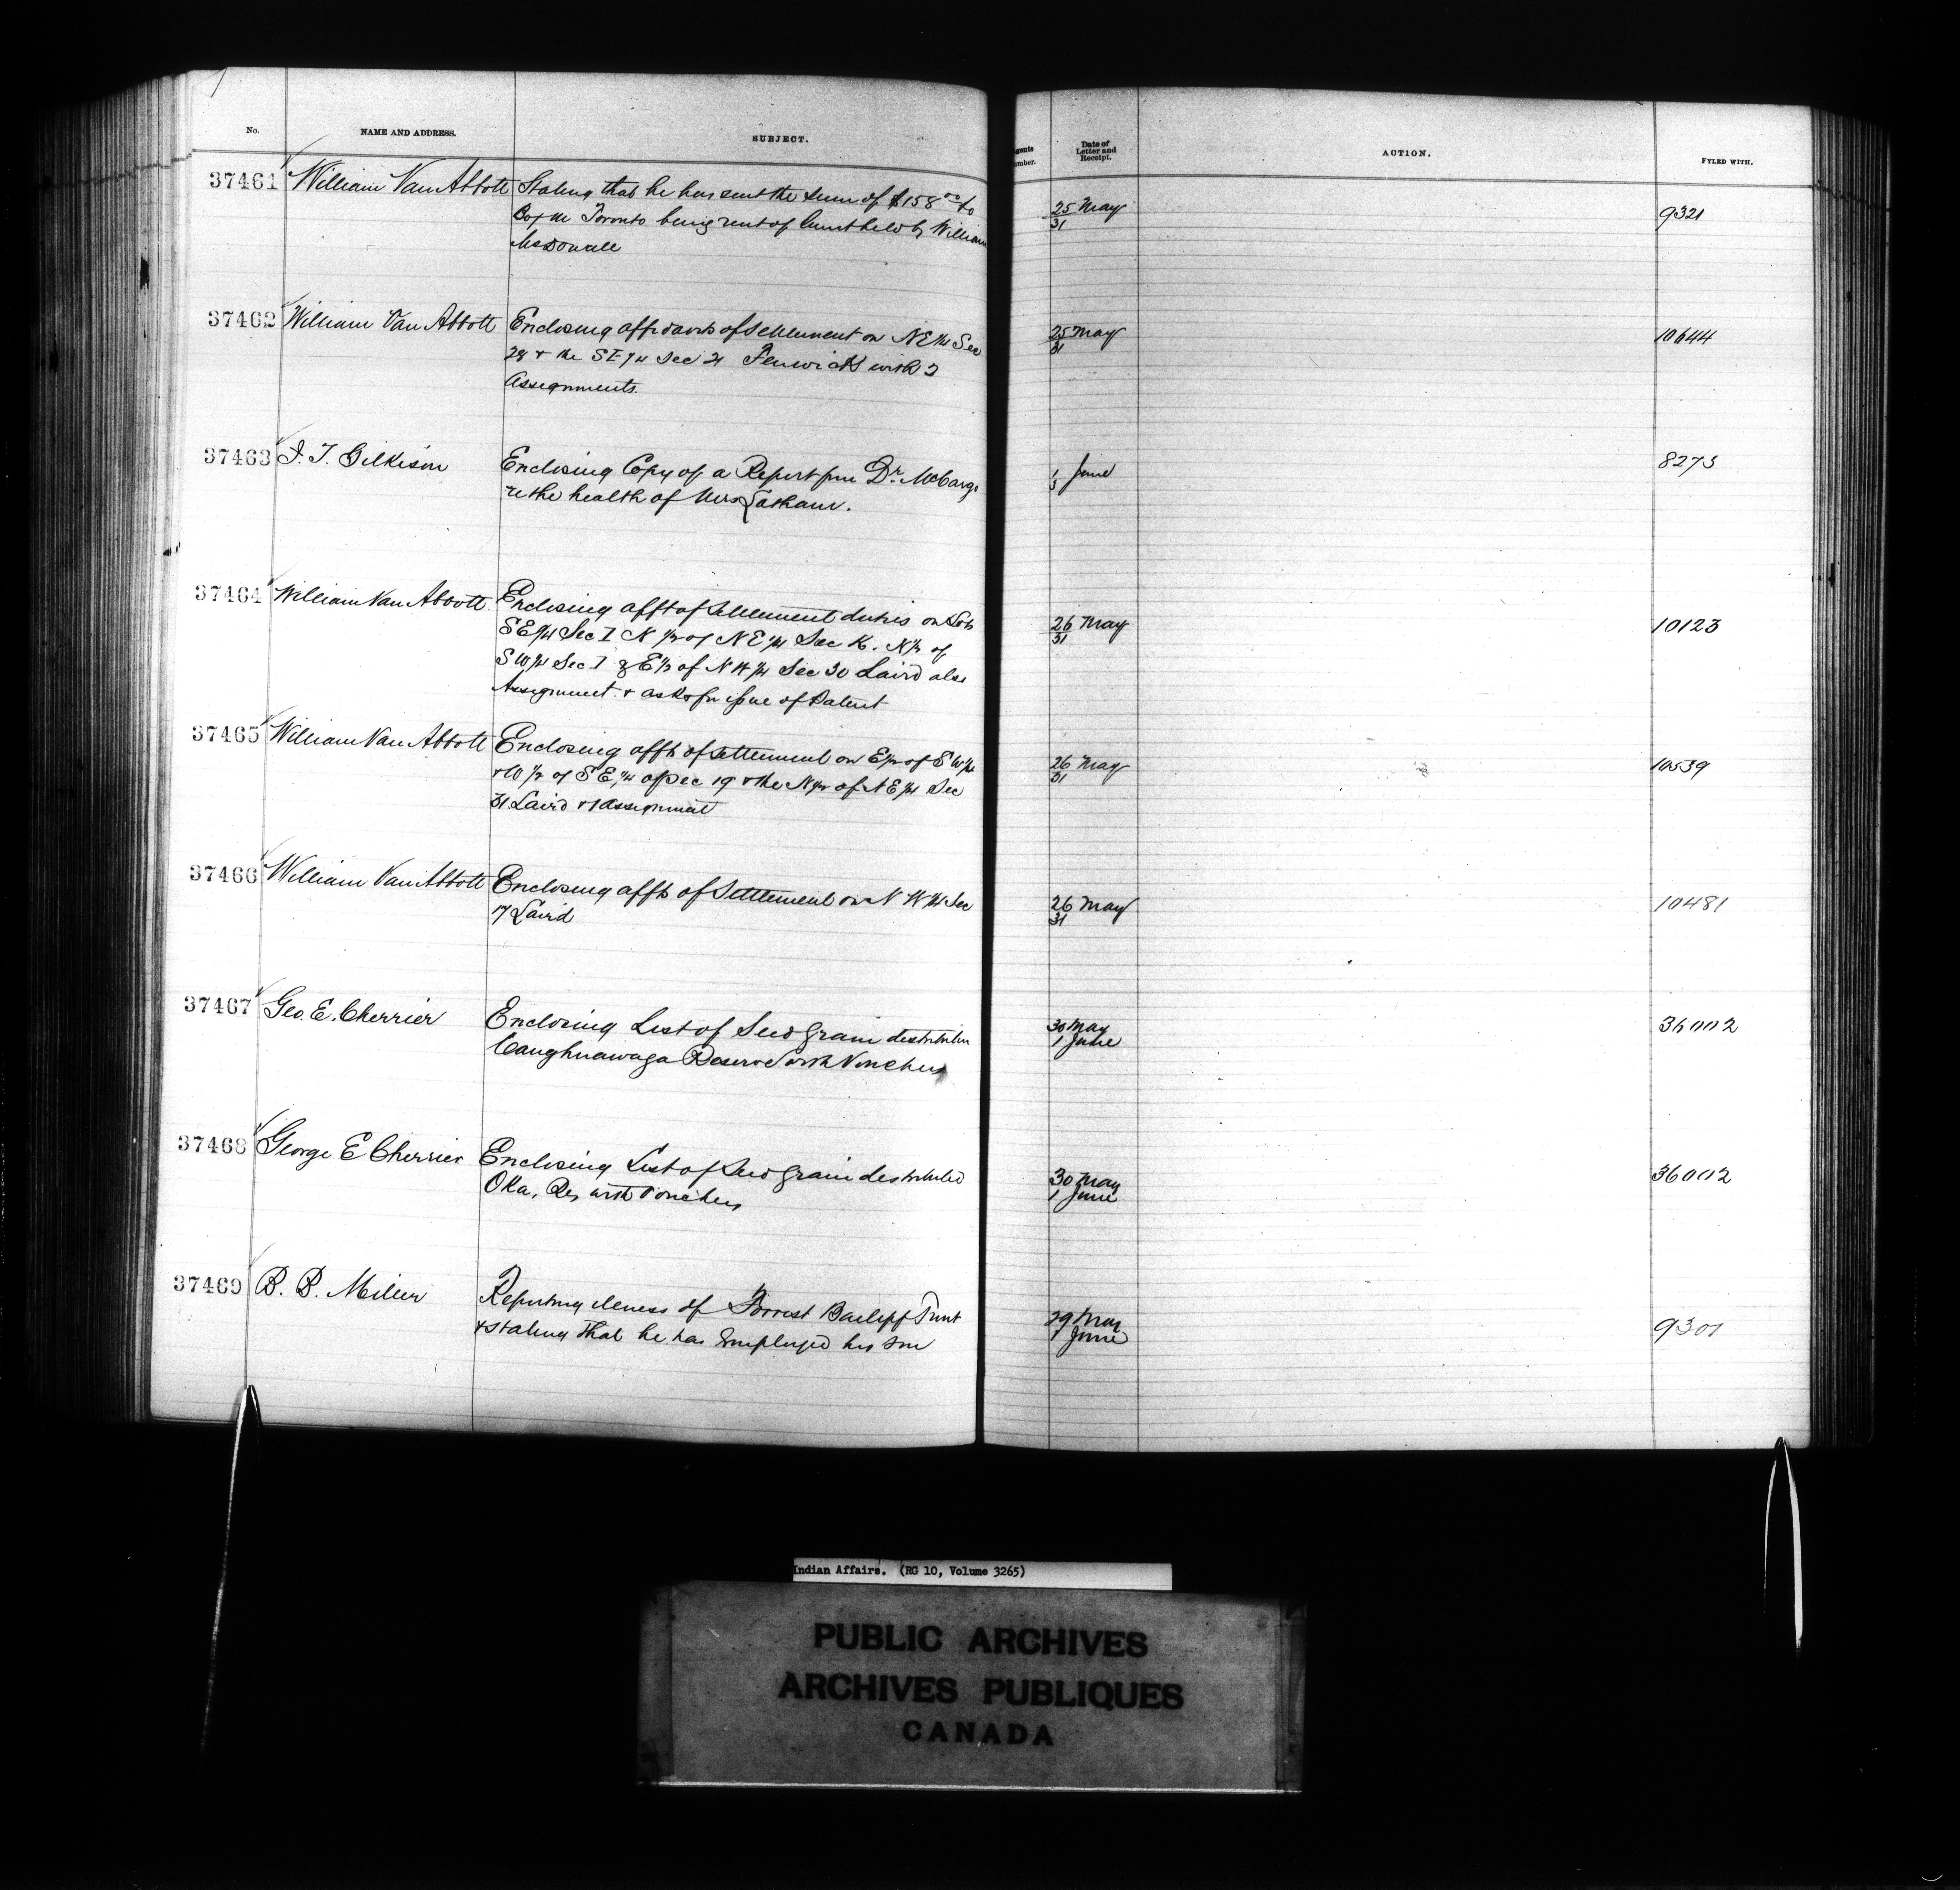 No. NAME AND ADDRESS. SUBJECT. Date of Letter and Receipt. ACTION. FYLED WITH.
37461 William Van Abbott Stating that he has sent the sum of $158 00 to
Toronto being rent of held by William
McDonall
25 May
31
9321
37462 William Van Abbott Enclosing affidavits of settlement on NE 1/4 Sec
28 & the SE 1/4 Sec 21 Fenwick with 2
Assignments.
25 May
31
10644
37463 J. T. Gilkison Enclosing Copy of a Report from Dr. McCarg
re the health of Mrs Latham.
1 June
5
8273
37464 William Van Abbott Enclosing afft of settlement duties on Lots
SE 1/4 Sec I N 1/2 of NE 1/4 Sec K. N 1/2 of
SW 1/4 Sec I & E 1/2 of N W 1/4 Sec 30 Laird also
Assignment & asks for issue of Patent
26 May
31
10123
37465 William Van Abbott Enclosing affts of settlement on E 1/2 of SW 1/4
& W 1/2 of SE 1/4 of Sec 19 & the N 1/2 of NE 1/4 Sec
31 Laird & 1 assignment
26 May
31
10539
37466 William Van Abbott Enclosing affts of Settlement on N W 1/4 Sec
17 Laird
26 May
31
10481
37467 Geo. E. Cherrier Enclosing List of Seed grain distribution
Caughnawaga Reserve with Vouchers
30 May
1 June
36002
37468 George E Cherrier Enclosing List of Seed grain distributed
Oka, Res with Vouchers
30 May
1 June
36002
37469 B. B. Miller Reporting illness of Forrest Bailiff
& stating that he has Employed his son
29 May
1 June
9301
Indian Affairs. (RG 10, Volume 3265)
PUBLIC ARCHIVES
ARCHIVES PUBLIQUES
CANADA